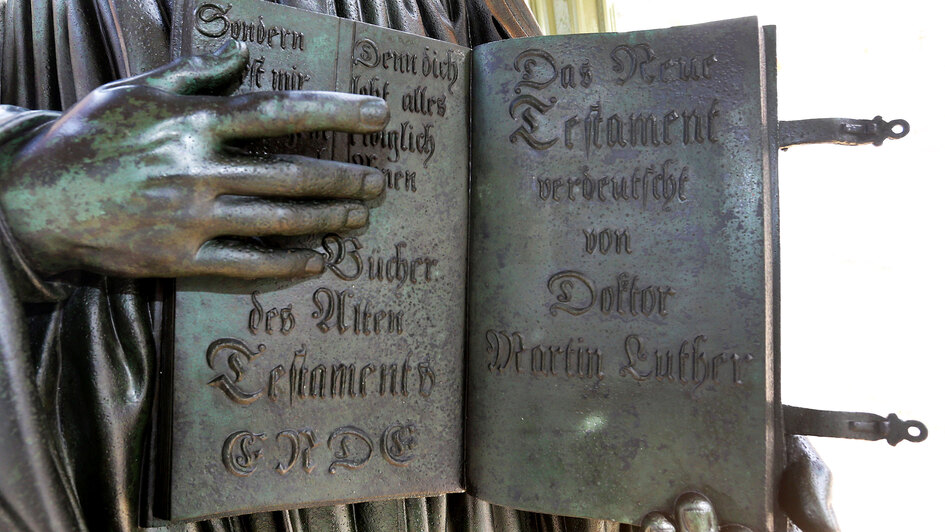 Sondern
mir
Denn dich
lobt alles
ewiglich
Bücher
des Alten
Testaments
ENDE
Das Neue
Testament
verdeutscht
von
Doktor
Martin Luther